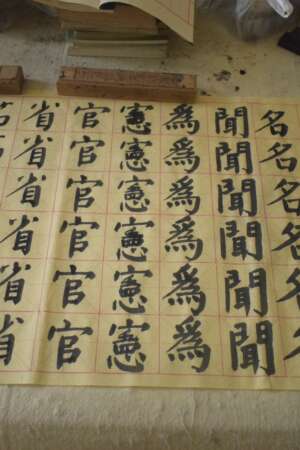 名名名名名名
聞聞聞聞聞聞
爲爲爲爲爲爲
憲憲憲憲憲憲
官官官官官官
省省省省省省